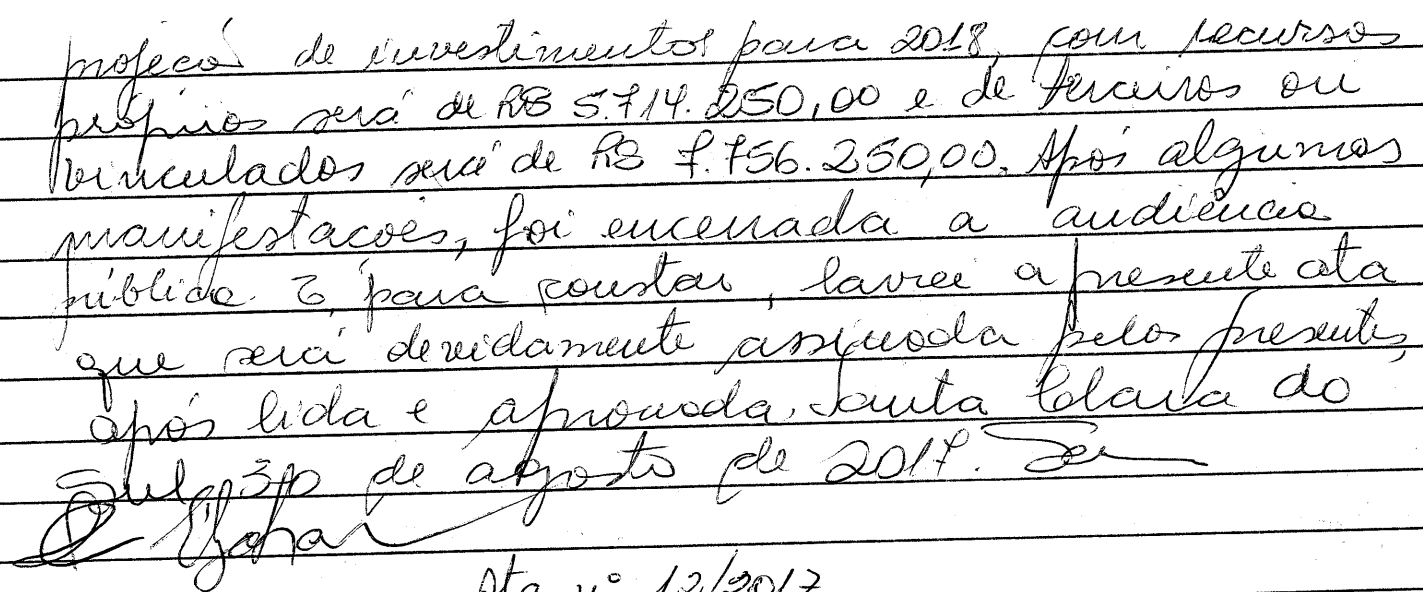 projeção de investimentos para 2018, com recursos
próprios será de R$ 5.714.250,00 e de terceiros ou
vinculados será de R$ 7.756.250,00. Após algumas
manifestações, foi encerrada a audiência
pública. E, para constar, lavrei a presente ata
que será devidamente assinada pelos presentes,
após lida e aprovada. Santa Clara do
Sul, 30 de agosto de 2017.
Ata nº 12/2017